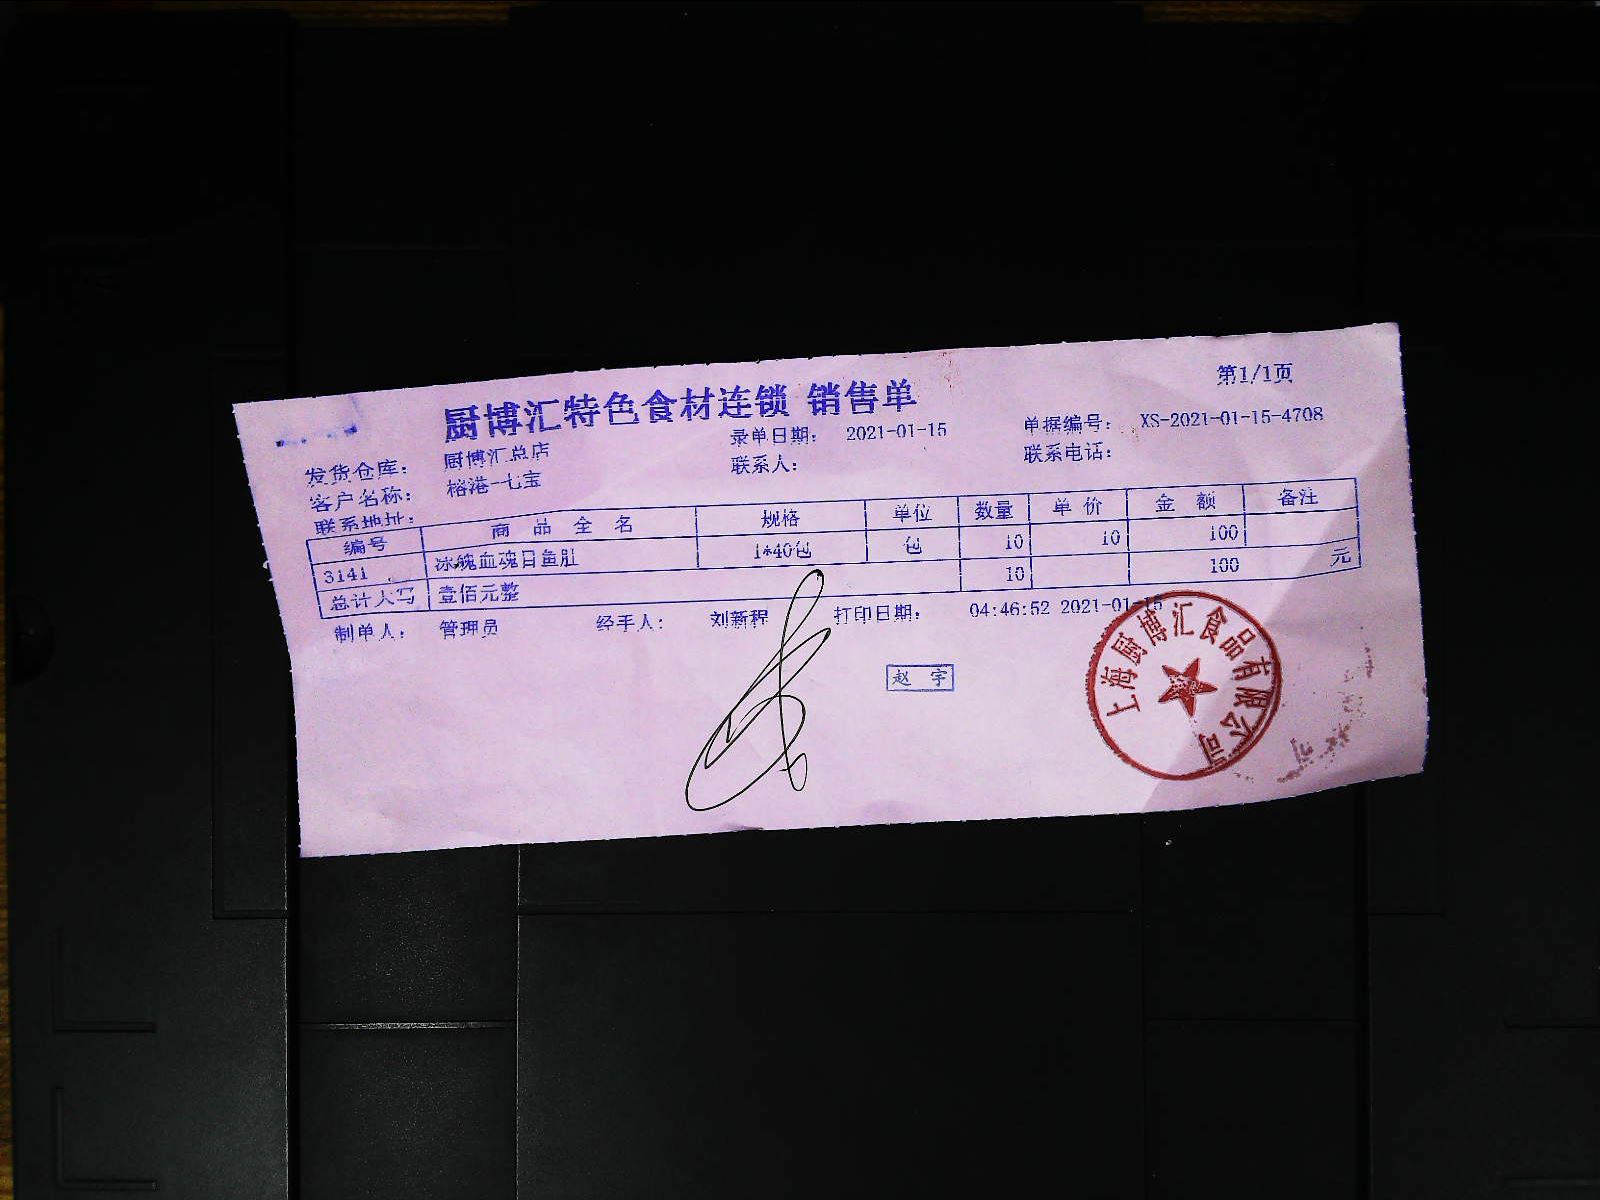 第1/1页
厨博汇特色食材连锁 销售单
录单日期: 2021-01-15 单据编号: XS-2021-01-15-4708
发货仓库: 厨博汇总店 联系人: 联系电话:
客户名称: 榕港-七宝
联系地址:
编号 商品全名 规格 单位 数量 单价 金额 备注
3141 冰魄血魂目鱼肚 1*40包 包 10 10 100
总计大写 壹佰元整 10 100 元
制单人: 管理员 经手人: 刘新程 打印日期: 04:46:52 2021-01-15
赵宇
上海厨博汇食品有限公司